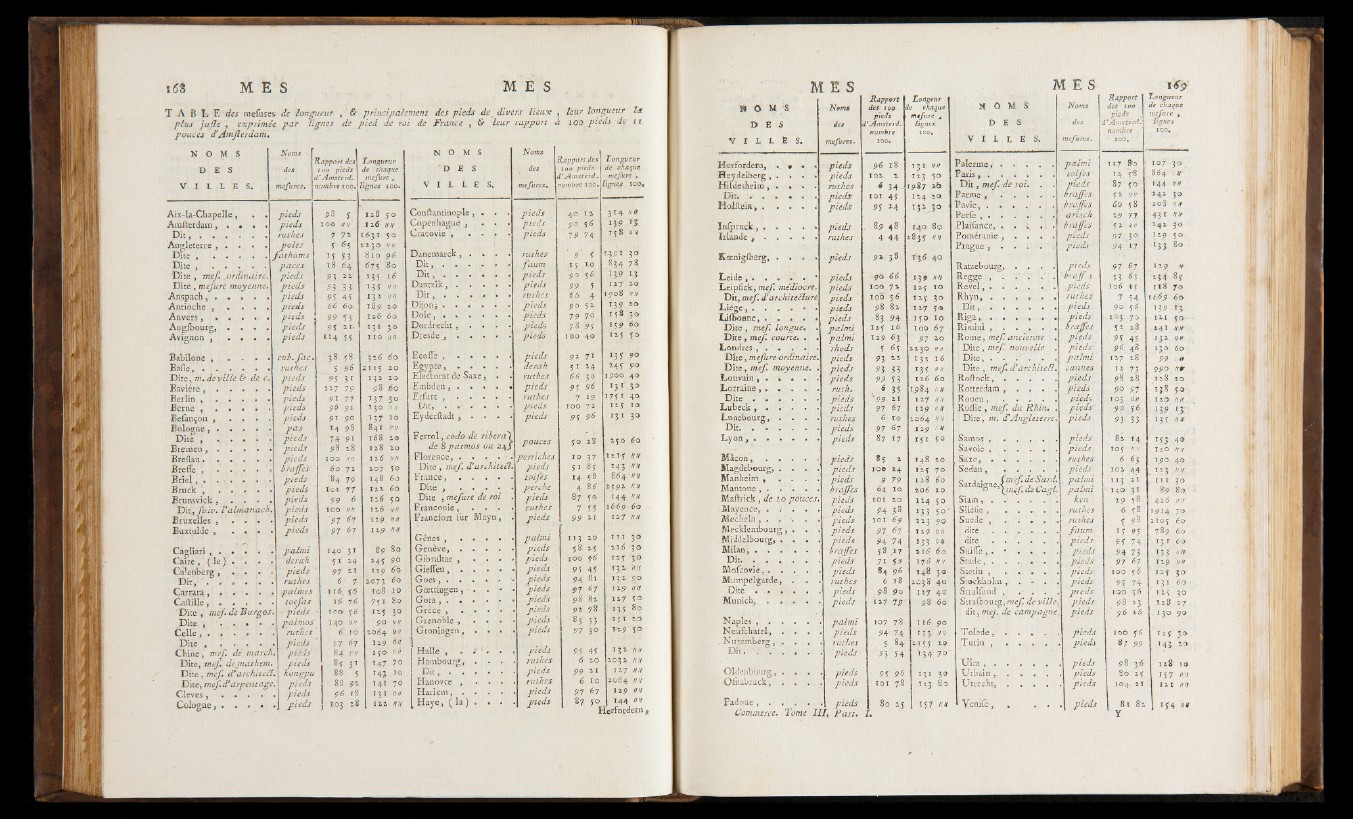 168 M E S M E S
T A B L E des meſures de longueur , & principalement des pieds de divers lieux , leur longueur la
plus juſte , exprimée par lignes de pied de roi de France , & leur rapport à 100 pieds de 11
pouces d'Amſterdam.
N O M S D E S V I L L E S. Noms des meſures. Rapport des 100 pieds d'Amsterd. nombre 100. Longueur de chaque meſure , lignes 100.
Aix-la-Chapelle , pieds 98 5 128 50
Amſterdam , pieds 100 〃 126 〃
Dit , ruthes 7 72 1631 50
Angleterre , poles 5 65 2230 〃
Dite , fathoms 15 53 810 96
Dite , paces 18 64 675 80
Dite , meſ. ordinaire. pieds 93 22 135 16
Dite , meſure moyenne. pieds 93 33 135 〃
Anspach , pieds 95 45 132 〃
Antioche , pieds 66 60 189 20
Anvers , pieds 99 53 126 60
Augſbourg, pieds 95 21 131 30
Avignon , pieds 114 55 110 〃
Babilone , cub. ſac. 38 58 326 60
Baſle , ruthes 5 96 2115 20
Dite , m. de ville & de c. pieds 95 31 132 20
Bavière , pieds 127 79 98 60
Berlin , pieds 91 77 137 30
Berne , pieds 96 92 130 〃
Beſançon , pieds 91 90 137 10
Bologne , pas 14 98 841 〃
Dite , pieds 74 91 168 20
Bremen , pieds 98 28 128 20
Breſlau , pieds 100 〃 126 〃
Breſſe , braſſes 60 72 207 50
Briel , pieds 84 79 148 60
Bruck , pieds 102 77 122 60
Brunsvick , pieds 99 6 126 50
Dit, ſuiv. l'almanach. pieds 100 〃 126 〃
Bruxelles , pieds 97 67 129 〃
Buxtulde , pieds 97 67 129 〃
Cagliari , palmi 140 31 89 80
Caire , ( le ) derah 51 24 245 90
Calenberg , pieds 97 21 129 60
Dit , ruthes 6 7 2073 60
Carrara , palmes 116 56 108 10
Caſtille , toeſas 16 76 751 80
Dite , meſ. de Burgos. pieds 100 56 125 30
Dite , palmos 140 〃 90 〃
Celle , ruthes 6 10 2064 〃
Dite , pieds 97 67 129 〃
Chine , meſ. de march. pieds 84 〃 150 〃
Dite, meſ. de mathem. pieds 85 31 147 70
Dite , meſ. d'architect. kongpu 88 5 143 10
Dite, meſ. d'arpentage. pieds 88 92 141 70
Cleves , pieds 96 18 131 〃
Cologne , pieds 103 28 122 〃
N O M S D E S V I L L E S. Noms des meſures. Rapport des 100 pieds d'Amsterd. nombre 100. Longueur de chaque meſure , lignes 100.
Conſtantinople , pieds 40 12 314 〃
Copenhague , pieds 90 56 139 13
Cracovie , pieds 79 74 158 〃
Danemarck , ruthes 9 5 1391 30
Dit , faum 15 10 834 78
Dit , pieds 90 56 139 13
Dantzik , pieds 99 5 127 20
Dit , ruthes 66 4 1908 〃
Dijon , pieds 90 52 139 20
Dole , pieds 79 70 158 30
Dordrecht , pieds 78 95 159 60
Dreſde , pieds 100 40 125 50
Ecoſſe , pieds 92 71 135 90
Egypte , derah 51 24 245 90
Electorat de Saxe , ruthes 66 30 1900 40
Embden , pieds 95 96 131 30
Erfurt , ruthes 7 19 1751 40
Dit , pieds 100 72 125 10
Eyderſtadt , pieds 95 96 131 30
Ferrol , codo de ribera de 8 palmos ou 24. pouces 50 28 250 60
Florence , pertiches 10 37 1215 〃
Dite , meſ. d'architect. pieds 51 85 243 〃
France , toiſes 14 58 864 〃
Dite , perche 4 86 2592 〃
Dite , meſure de roi pieds 87 50 144 〃
Franconie , ruthes 7 55 1669 60
Francfort ſur Mayn , pieds 99 21 127 〃
Gènes , palmi 113 20 111 30
Genève, pieds 58 25 216 30
Gibraltar , pieds 100 56 125 30
Gieſſen , pieds 95 45 132 〃
Goes , pieds 94 81 132 90
Gœttingen , pieds 97 67 129 〃
Gota , pieds 98 82 127 50
Grèce , pieds 92 78 135 80
Grenoble , pieds 83 33 151 20
Groningen , pieds 97 30 129 50
Halle , pieds 95 45 132 〃
Hambourg, ruthes 6 20 2032 〃
Dit , pieds 99 21 127 〃
Hanovre , ruthes 6 10 2064 〃
Harlem , pieds 97 67 129 〃
Haye, ( la ) pieds 87 50 144 〃
Herfordern ,
M E S M E S 169
N O M S D E S V I L L E S. Noms des meſures. Rapport des 100 pieds d'Amsterd. nombre 100. Longueur de chaque meſure , lignes 100.
Herfordern, pieds 96 18 131 〃
Heydelberg , pieds 102 2 123 50
Hildesheim , ruthes 6 34 1987 20
Dit. pieds 101 45 124 20
Holſtein , pieds 95 24 132 30
Inſpruck , pieds 89 48 140 80
Irlande , ruthes 4 44 2835 〃
Kœnigſberg, pieds 92 38 136 40
Leide , pieds 90 66 139 〃
Leipſick, meſ. médiocre. pieds 100 72 125 10
Dit, meſ. d'architecture pieds 100 56 125 30
Liége , pieds 98 82 127 50
Liſbonne , pieds 83 94 150 10
Dite , meſ. longue. palmi 125 16 100 67
Dite , meſ. courte. palmi 129 63 97 20
Londres , rhods 5 65 2230 〃
Dite, meſure ordinaire. pieds 93 22 135 16
Dite, meſ. moyenne. pieds 93 33 135 〃
Louvain , pieds 99 53 126 60
Lorraine , ruth. 6 35 1984 〃
Dite pieds 99 21 127 〃
Lubeck , pieds 97 67 129 〃
Lunebourg, ruthes 6 10 2064 〃
Dit. pieds 97 67 129 〃
Lyon , pieds 87 17 151 50
Mâcon , pieds 85 2 148 20
Magdebourg, pieds 100 24 125 70
Manheim , pieds 9 79 128 60
Mantone , braſſes 61 10 206 20
Maſtrick , de 10 pouces. pieds 101 20 124 50
Mayence, pieds 94 38 133 50
Mecheln , pieds 101 69 123 90
Mecklembourg , pieds 97 67 129 〃
Middelbourg, pieds 94 74 133 〃
Milan, braſſes 58 17 216 60
Dit. pieds 71 59 176 〃
Moſcovie , pieds 84 96 148 30
Mumpelgarde, ruthes 6 18 2038 40
Dite pieds 98 90 127 40
Munich, pieds 127 79 98 60
Naples , palmi 107 78 116 90
Neufchatel, pieds 94 74 133 〃
Nuremberg , ruthes 5 84 2155 20
Dit. pieds 93 54 134 70
Oldenbourg , pieds 95 96 131 30
Oſnabruck , pieds 101 78 123 80
Padoue , pieds 80 25 157 〃
N O M S D E S V I L L E S. Noms des meſures. Rapport des 100 pieds d'Amsterd. nombre 100. Longueur de chaque meſure , lignes 100.
Palerme , palmi 117 80 107 30
Paris , toiſes 14 58 864 〃
Dit , meſ. de roi. pieds 87 50 144 〃
Parme , braſſes 52 〃 242 30
Pavie , braſſes 60 58 208 〃
Perſe , arisch 29 77 431 〃
Plaiſance, braſſes 52 〃 242 30
Poméranie , pieds 97 30 129 50
Prague , pieds 94 17 133 80
Ratzebourg, pieds 97 67 129 〃
Regge , braſſes 53 63 234 85
Revel , pieds 106 15 118 70
Rhyn, ruthes 7 54 1669 60
Dit , pieds 90 56 139 13
Riga , pieds 103 70 121 50
Rimini , braſſes 52 28 241 〃
Rome , meſ. ancienne pieds 95 45 132 〃
Dite , meſ. nouvelle pieds 96 48 130 60
Dite , palmi 127 28 99 〃
Dite , meſ. d'architect. cannes 12 73 990 〃
Roſtock , pieds 98 28 128 20
Rotterdam , pieds 90 97 138 50
Rouen , pieds 105 〃 120 〃
Ruſſie , meſ. du Rhin. pieds 90 56 139 13
Dite , m. d'Angleterre. pieds 93 33 135 〃
Samos , pieds 82 14 153 40
Savoie , pieds 105 〃 120 〃
Saxe , ruthes 6 63 190 40
Sedan , pieds 102 44 123 〃
Sardaigne , meſ. de Sard. palmi 113 21 111 30
meſ. de Cagl. palmi 140 31 89 80
Siam , ken 19 58 426 〃
Siléſie , ruthes 6 58 1914 70
Suede , ruthes 5 98 2105 60
dite faum 15 95 789 60
dite pieds 95 74 131 60
Suiſſe , pieds 94 73 133 〃
Stade , pieds 97 67 129 〃
Stetin , pieds 100 56 125 30
Stockholm , pieds 95 74 131 60
Stralſund , pieds 100 56 125 30
Strasbourg, meſ. de ville. pieds 98 23 128 27
dit, meſ. de campagne. pieds 96 26 130 90
Tolede, pieds 100 56 125 30
Turin , pieds 87 99 143 20
Ulm , pieds 98 36 128 10
Urbain , pieds 80 25 157 〃
Utrecht, pieds 104 21 121 〃
Veniſe , pieds 81 82 154 〃
Commerce. Tome III, Part. I. Y